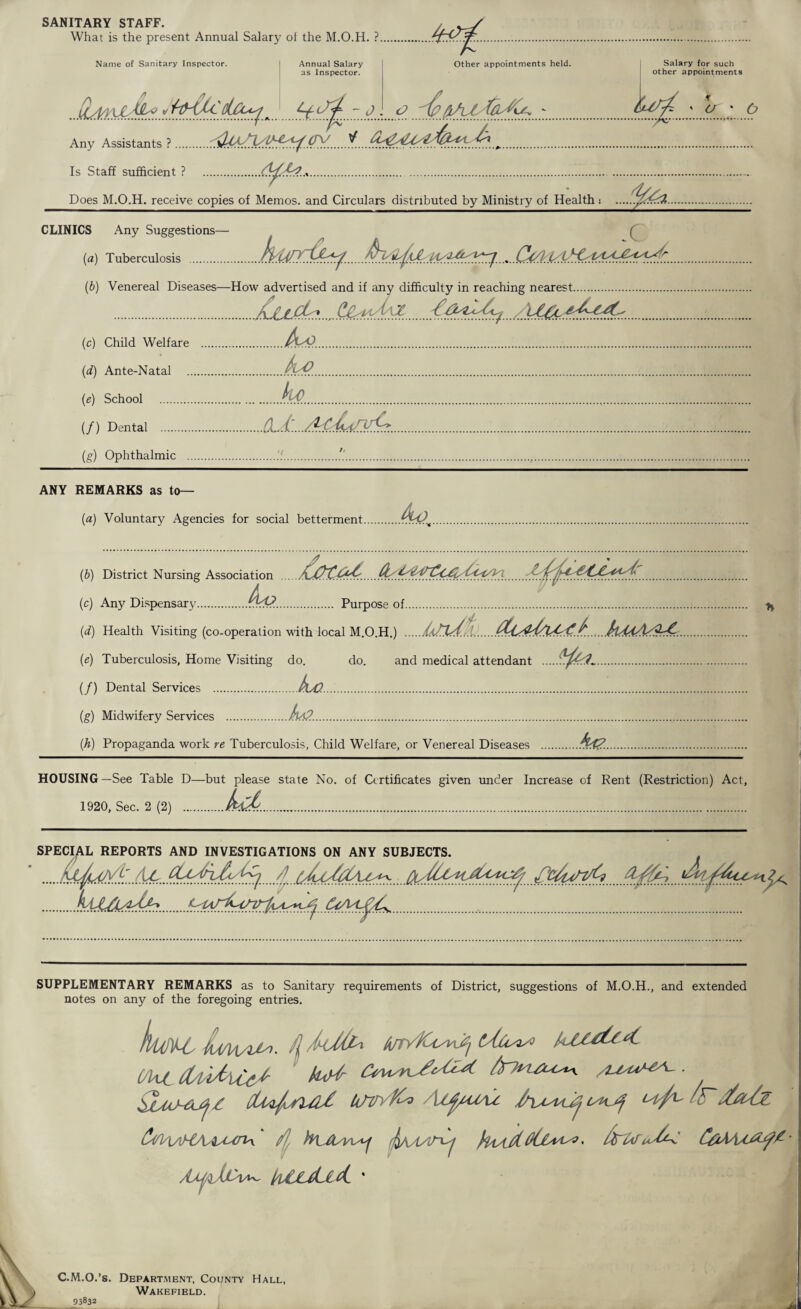 SANITARY STAFF.
What is the present Annual Salary of the M.O.H. ? 40£
Name of Sanitary Inspector. Annual Salary as Inspector. Other appointments held. Salary for such other appointments
Holliday. 40£ - 0 . 0 60£ . 0 . 0
Any Assistants ? Surveyor & assistant.
Is Staff sufficient ? Yes.
Does M.O.H. receive copies of Memos. and Circulars distributed by Ministry of Health : Yes
CLINICS Any Suggestions—
(a) Tuberculosis convenient
(b) Venereal Diseases—How advertised and if any difficulty in reaching nearest
Leeds Centre easily reached
(c) Child Welfare No
(d) Ante-Natal No
(e) School No
(f) Dental At school
(g) Ophthalmic " "
ANY REMARKS as to—
(a) Voluntary Agencies for social betterment No.
(b) District Nursing Association Local Association efficient
(c) Any Dispensary No Purpose of
(d) Health Visiting (co-operation with local M.O.H.) With district nurse
(e) Tuberculosis, Home Visiting do. do. and medical attendant Yes.
(f) Dental Services No
(g) Midwifery Services No
(h) Propaganda work re Tuberculosis, Child Welfare, or Venereal Diseases No
HOUSING—See Table D—but please state No. of Certificates given under Increase of Rent (Restriction) Act,
1920, Sec. 2 (2) Nil
SPECIAL REPORTS AND INVESTIGATIONS ON ANY SUBJECTS.
Report re debility of children attending Schools after Influenza
measles whooping cough
SUPPLEMENTARY REMARKS as to Sanitary requirements of District, suggestions of M.O.H., and extended
notes on any of the foregoing entries.
More houses. of better working class needed
One district not connected to main sewer.
Sewage disposal works require bringing up to date
Conversion of many privy middens. Carriage
needed.
C.M.O.'s. Department, County Hall,
Wakefield.
93832